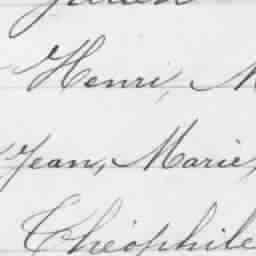 Julien
Henri, M
Jean, Marie,
Théophile